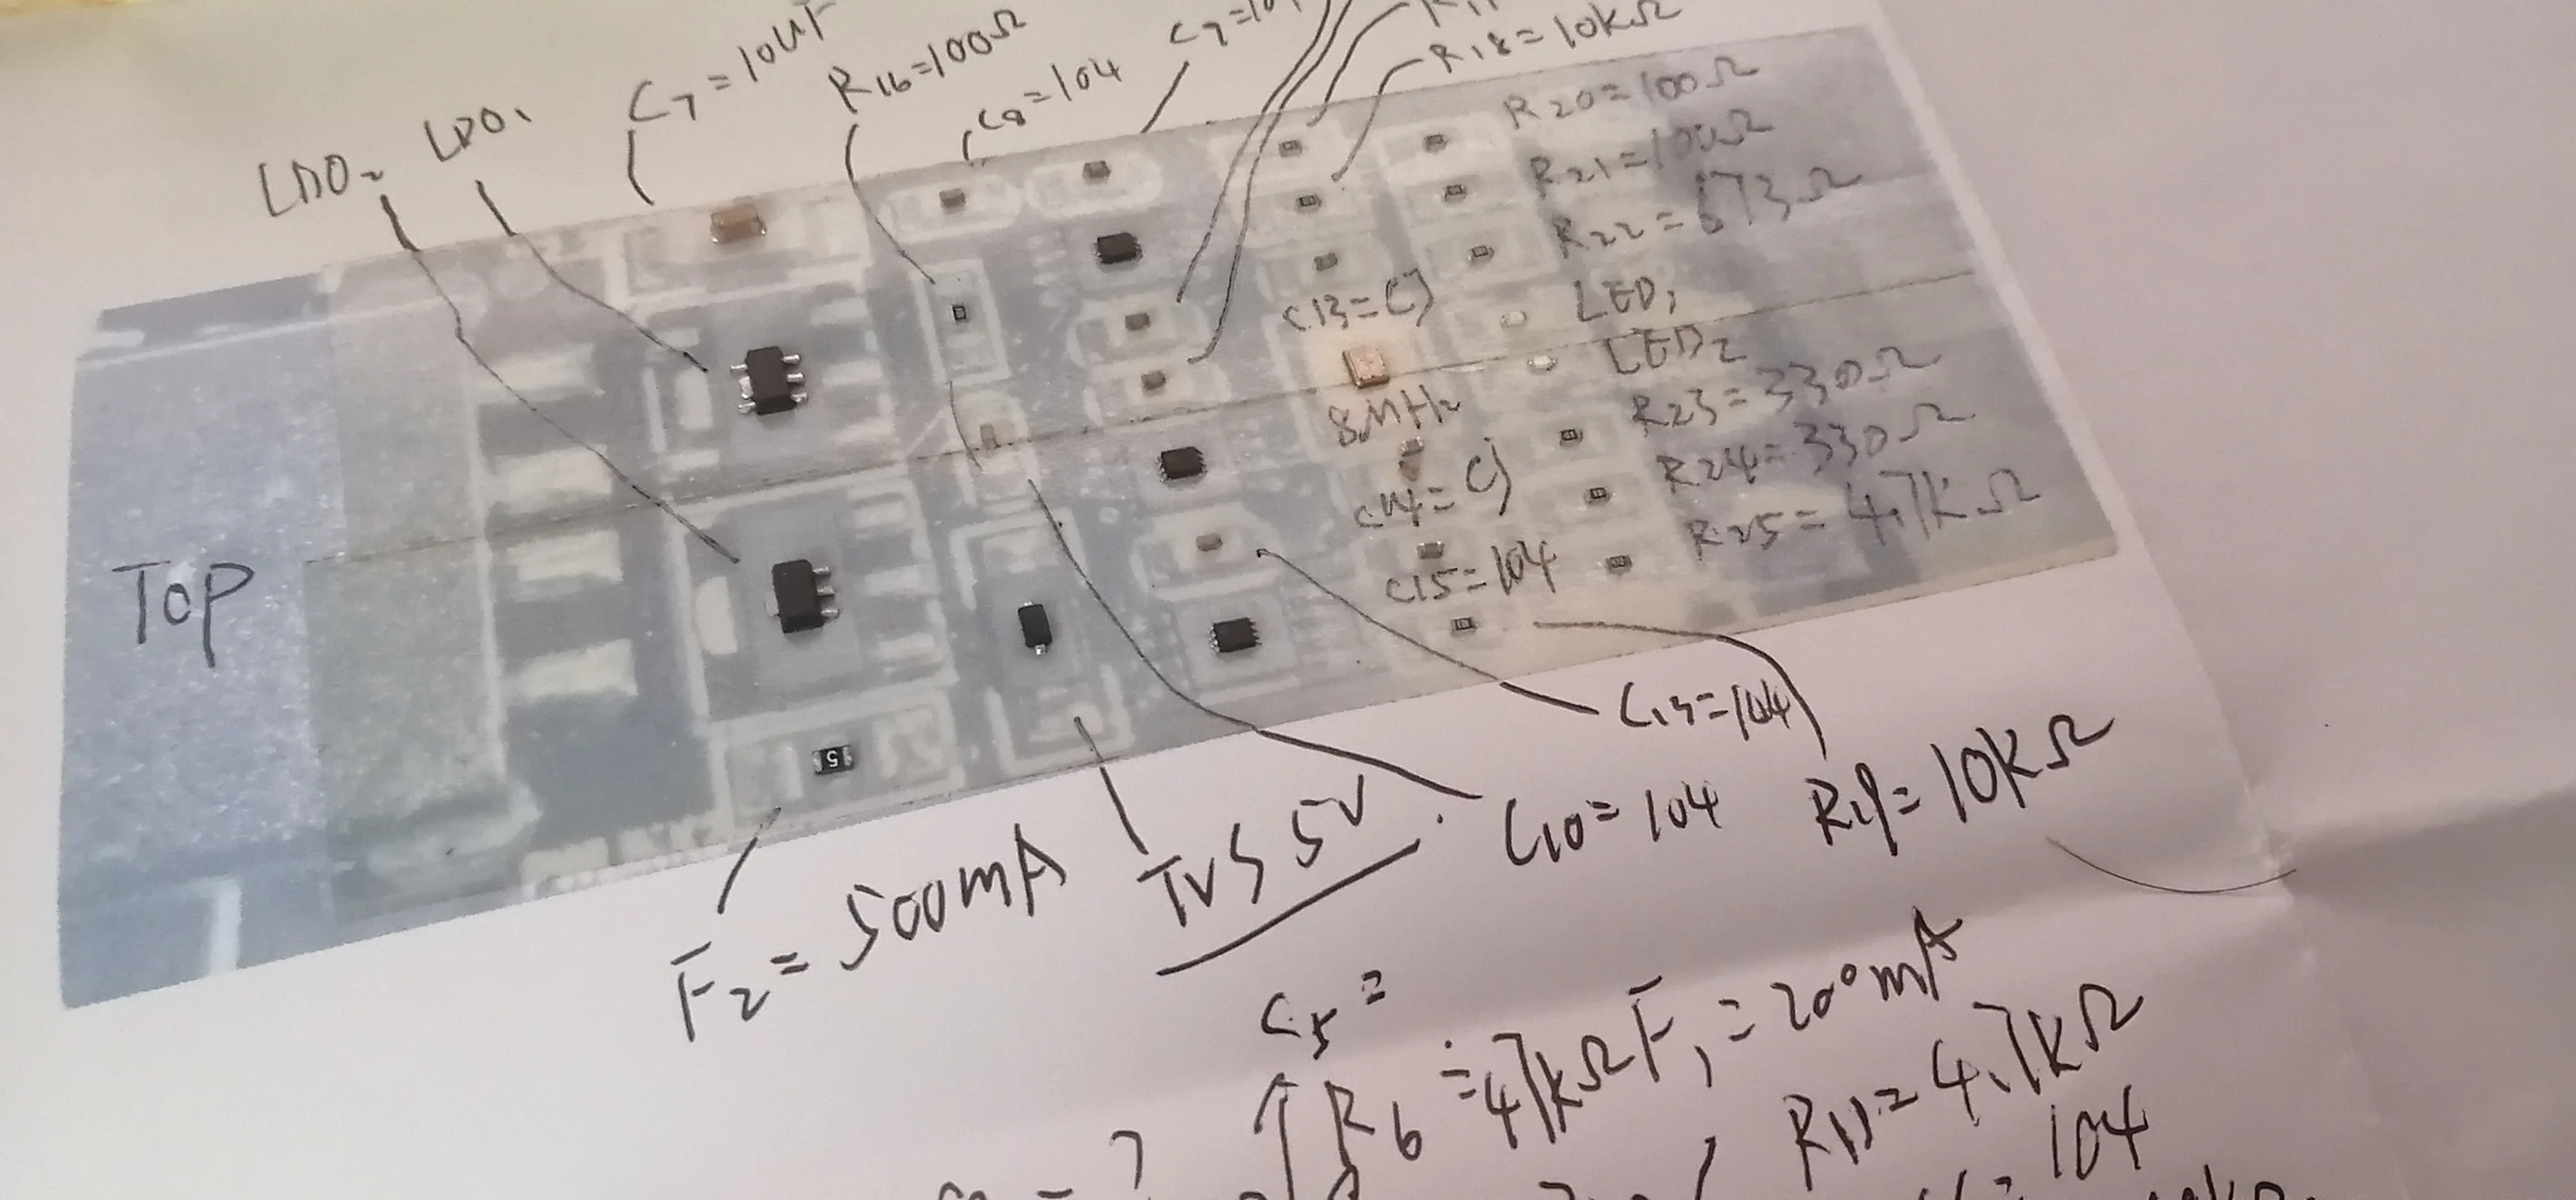 LDO2
LDO1
C7=10UF
R16=100Ω
C8=104
R18=10KΩ
R20=100Ω
R21=100Ω
R22=673Ω
C13=CJ
LED1
LED2
8MHz
R23=330Ω
C14=CJ
R24=330Ω
C15=104
R25=4.7KΩ
TOP
5
C13=104
C10=104
R19=10KΩ
F2=500mA
TVS 5V
C5=
R6=47KΩ
F1=200mA
R11=4.7KΩ
104